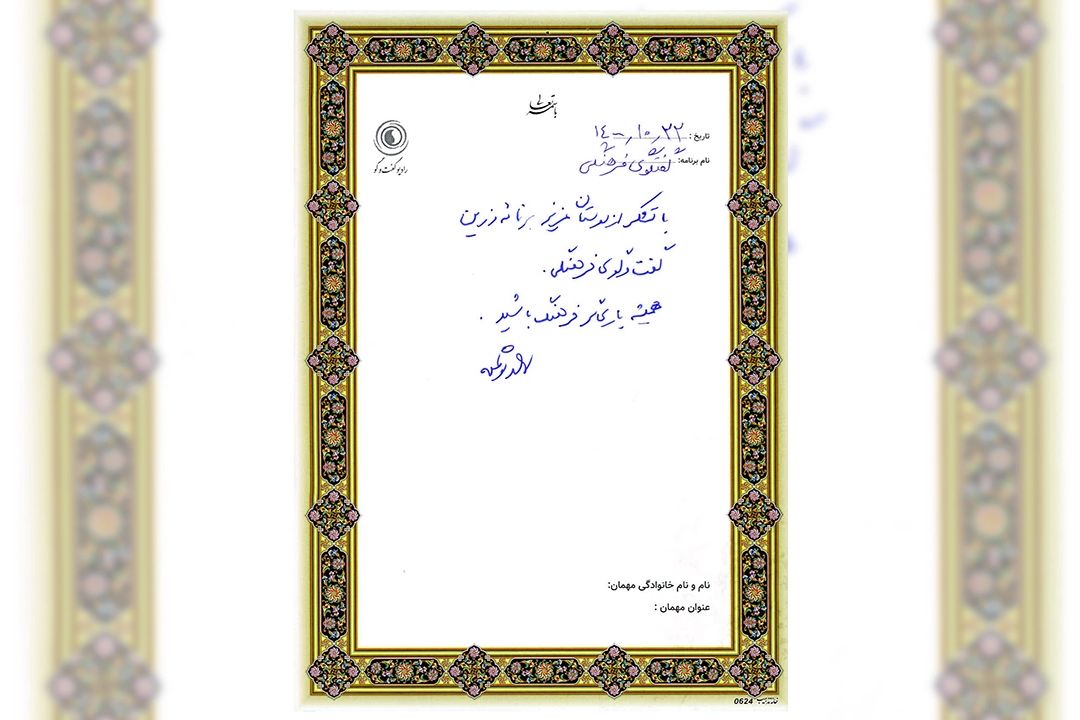 باسمه تعالی
رادیو گفت‌وگو
تاریخ : ۱۴۰۰٫۱۰٫۲۲
نام برنامه: گفتگوی فرهنگی
با تشکر از دوستان عزیز برنامه وزین
گفت و گوی فرهنگی.
همیشه یاریگر فرهنگ باشید.
نام و نام خانوادگی مهمان:
عنوان مهمان :
0624